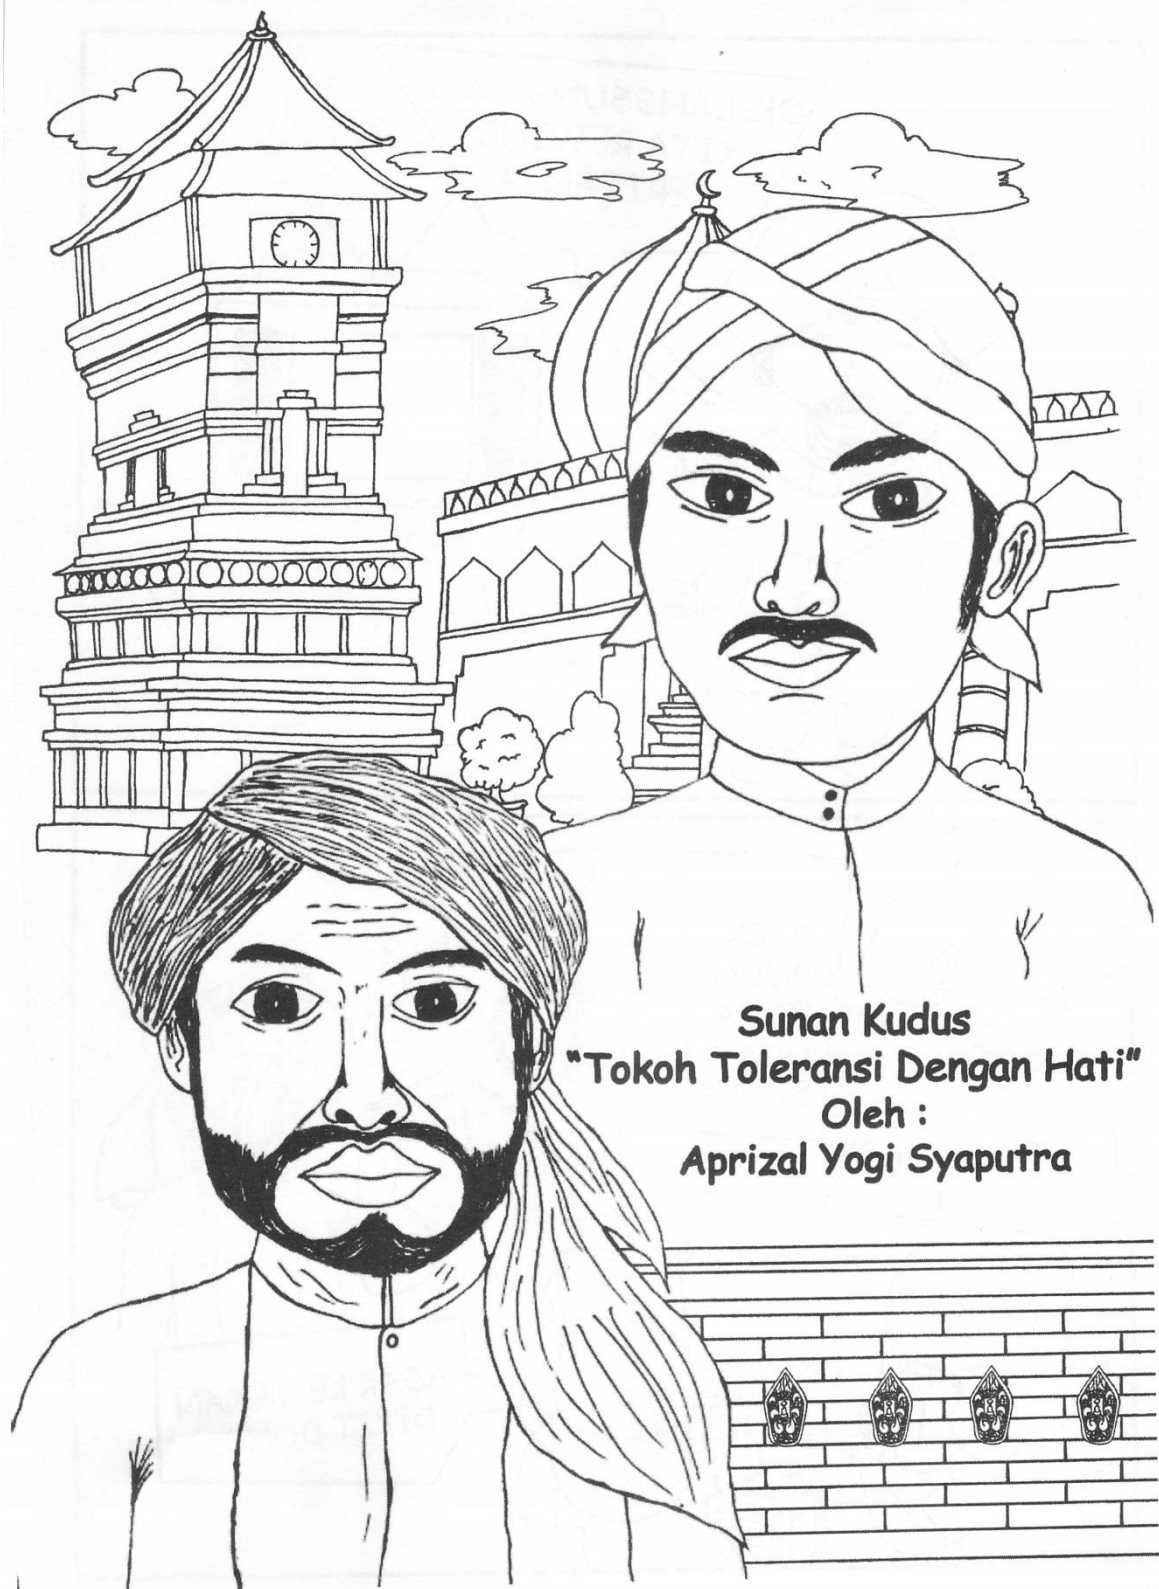 Sunan Kudus
"Tokoh Toleransi Dengan Hati"
Oleh :
Aprizal Yogi Syaputra